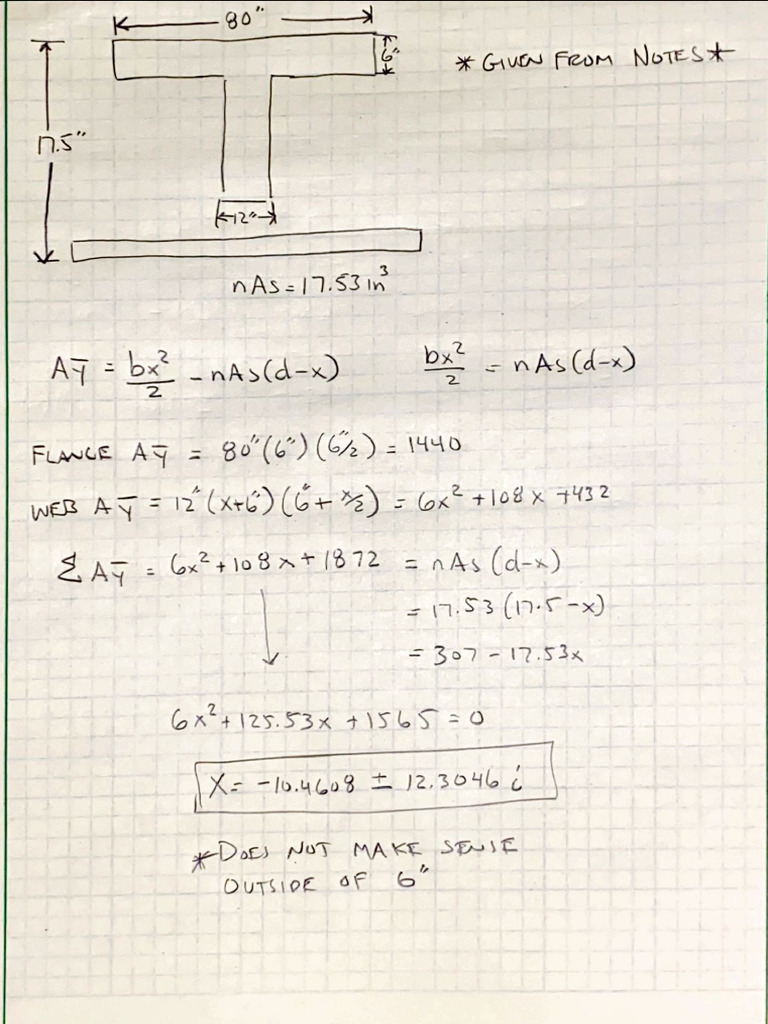 80"
6"
* GIVEN FROM NOTES *
17.5"
12"
nAs = 17.53 in³
Aȳ = bx²/2 - nAs(d-x)
bx²/2 = nAs(d-x)
FLANGE Aȳ = 80"(6")(6"/2) = 1440
WEB Aȳ = 12"(x+6")(6"+x/2) = 6x² + 108x + 432
ΣAȳ = 6x² + 108x + 1872 = nAs(d-x)
= 17.53(17.5-x)
= 307 - 17.53x
6x² + 125.53x + 1565 = 0
X = -10.4608 ± 12.3046 i
* DOES NOT MAKE SENSE
OUTSIDE OF 6"